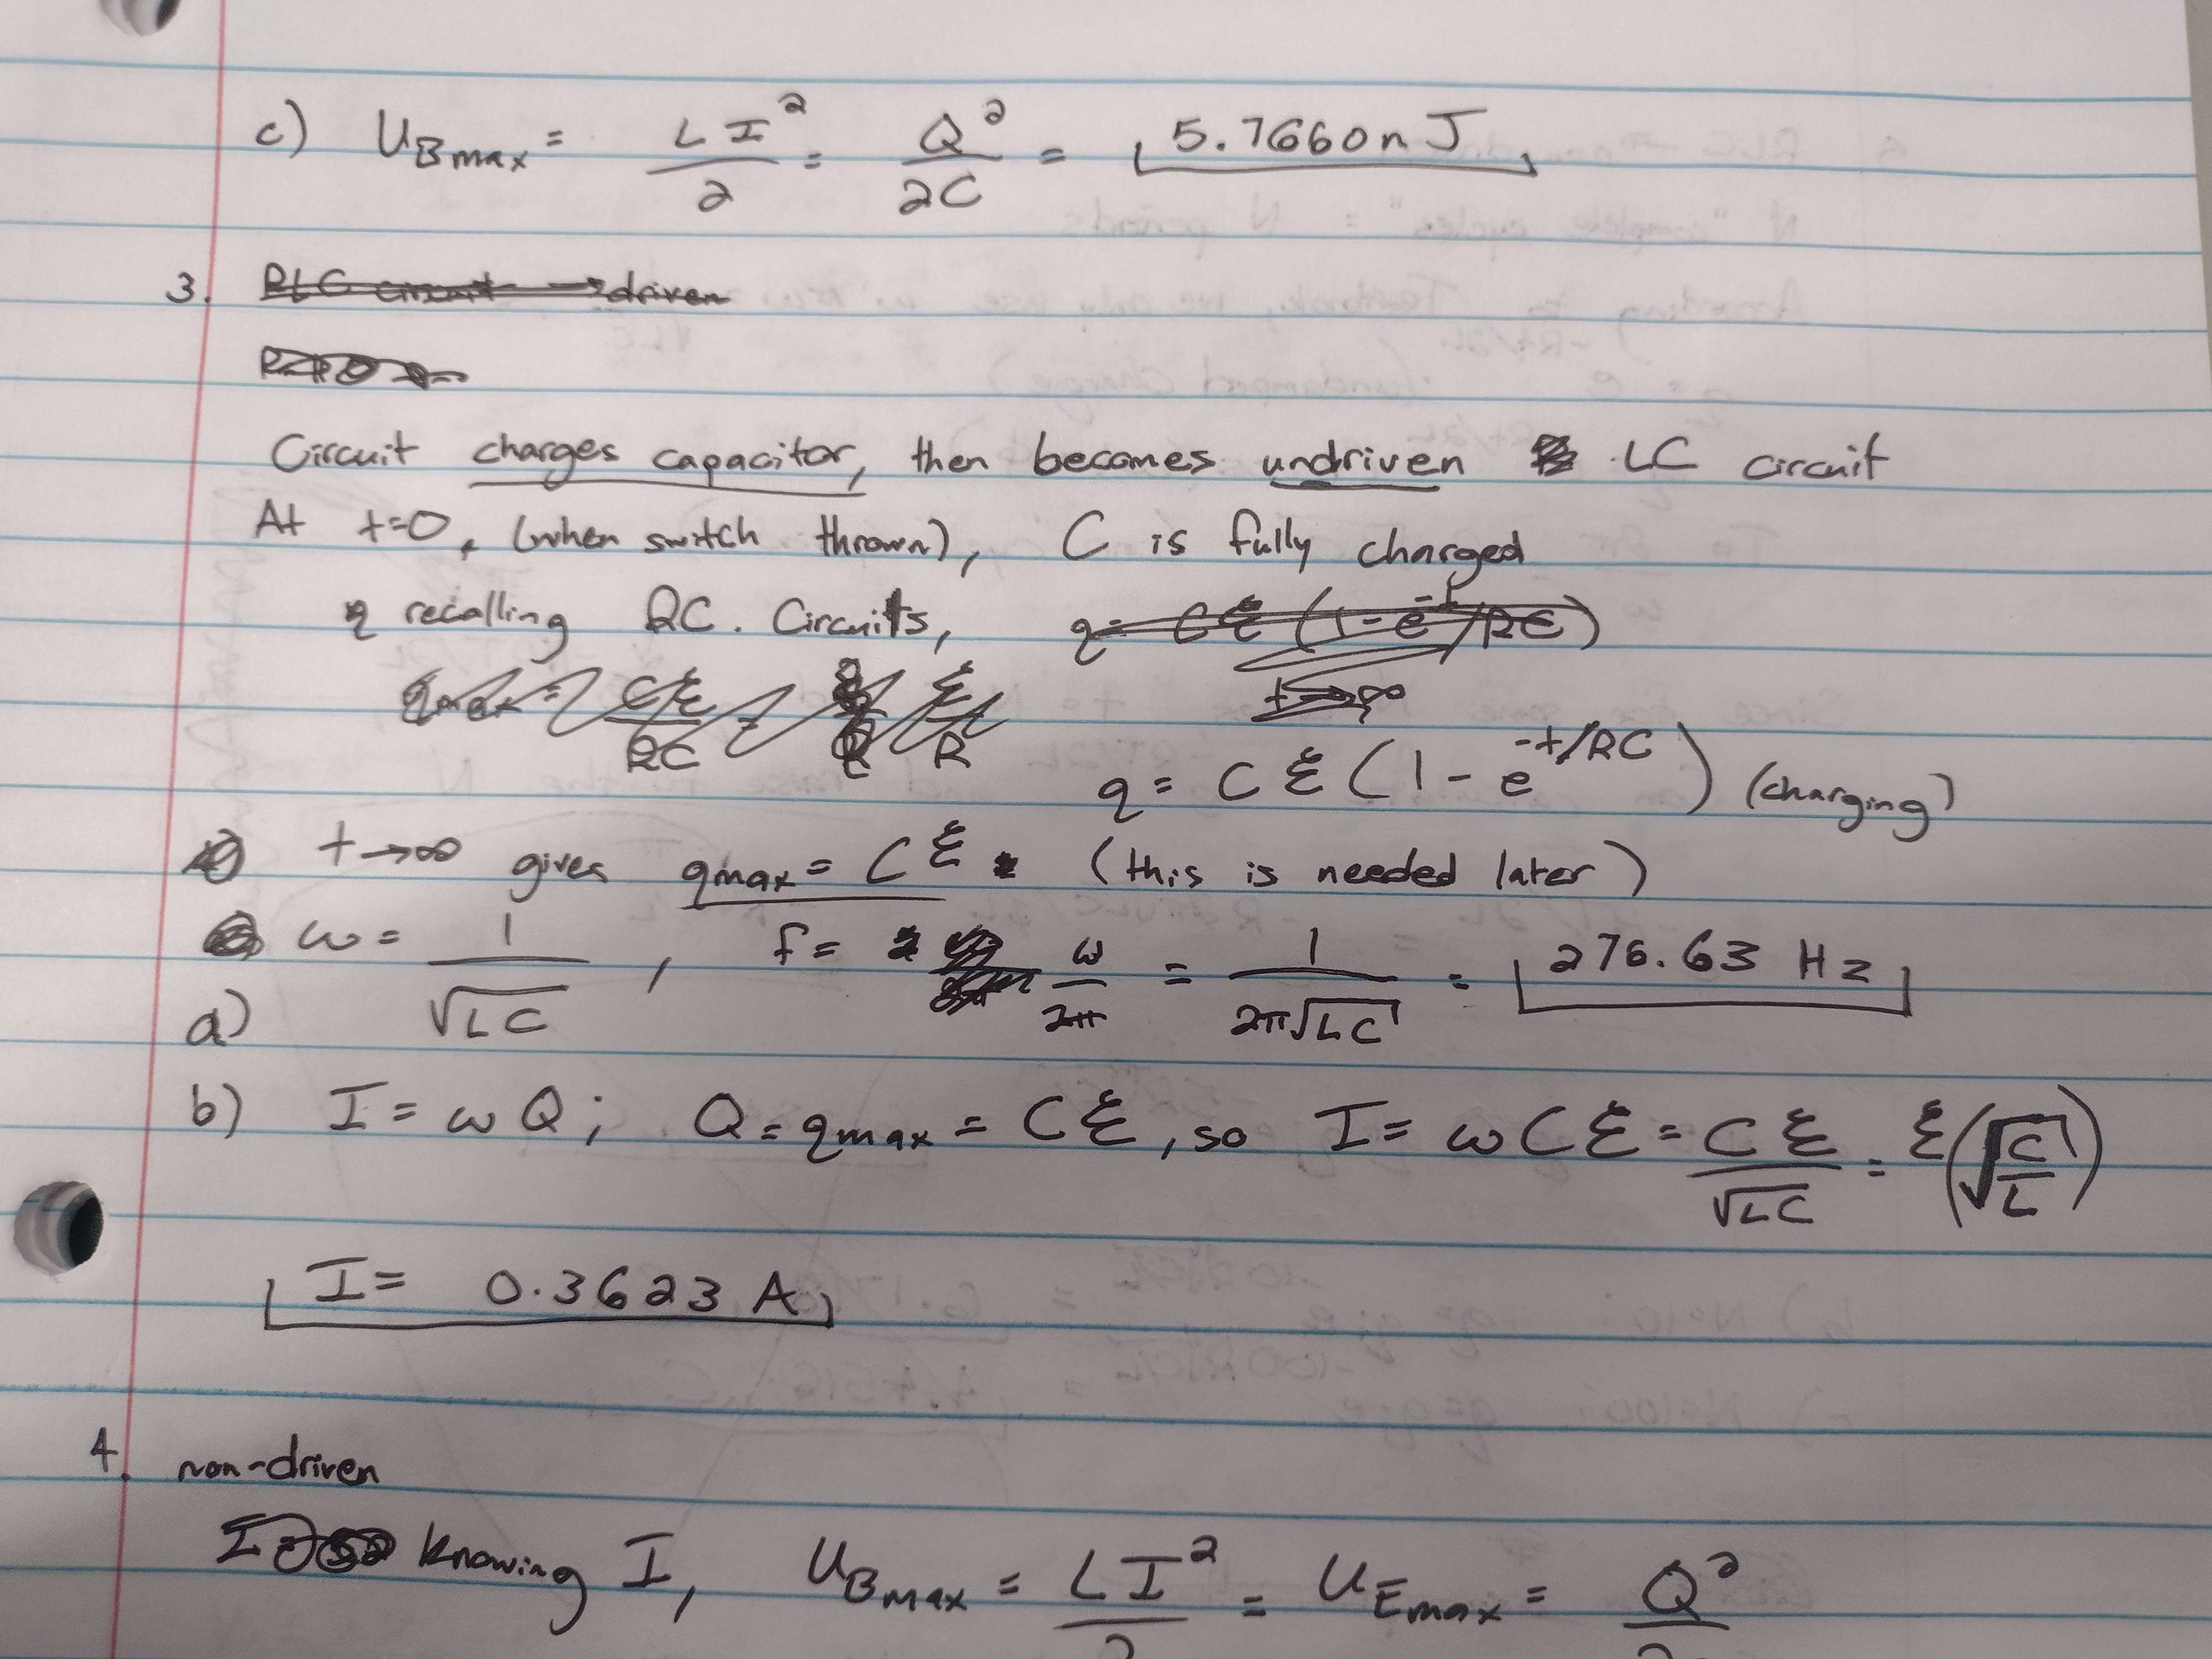 c) U_Bmax = LI²/2 = Q²/2C = 5.7660nJ
3. RLC circuit → driven
Circuit charges capacitor, then becomes undriven LC circuit
At t=0, (when switch thrown), C is fully charged
recalling RC. Circuits, q = Cℰ(1-e^-t/RC)
qmax = Cℰ/RC = ℰ/R t→∞
q = Cℰ(1-e^-t/RC) (charging)
t→∞ gives qmax = Cℰ (this is needed later)
ω = 1/√LC , f = ω/2π = 1/2π√LC = 276.63 Hz
a)
b) I = ωQ; Q = qmax = Cℰ, so I = ωCℰ = Cℰ/√LC = ℰ(√C/L)
I = 0.3623 A
4. non-driven
knowing I, U_Bmax = LI²/2 = U_Emax = Q²